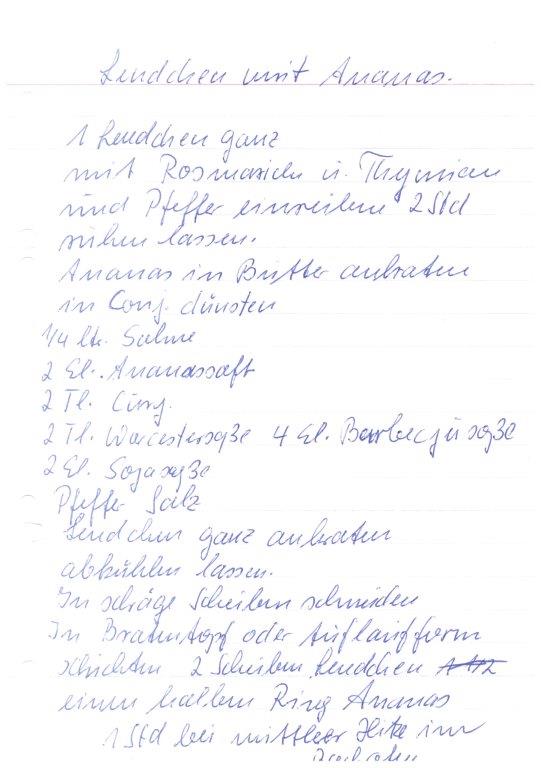 Lendchen mit Ananas.
1 Lendchen ganz
mit Rosmarien u. Thymian
und Pfeffer einreiben 2 Std
ruhen lassen.
Ananas in Butter anbraten
in Conj. dünsten
1/4 ltr. Sahne
2 El. Ananassaft
2 Tl. Curry.
2 Tl. Worcestersoße 4 El. Barbecjusoße
2 El. Sojasoße
Pfeffer Salz
Lendchen ganz anbraten
abkühlen lassen.
In schräge Scheiben schneiden
In Bratentopf oder Auflaufform
schichten 2 Scheiben Lendchen
einen halben Ring Ananas
1 Std bei mittlerer Hitze im